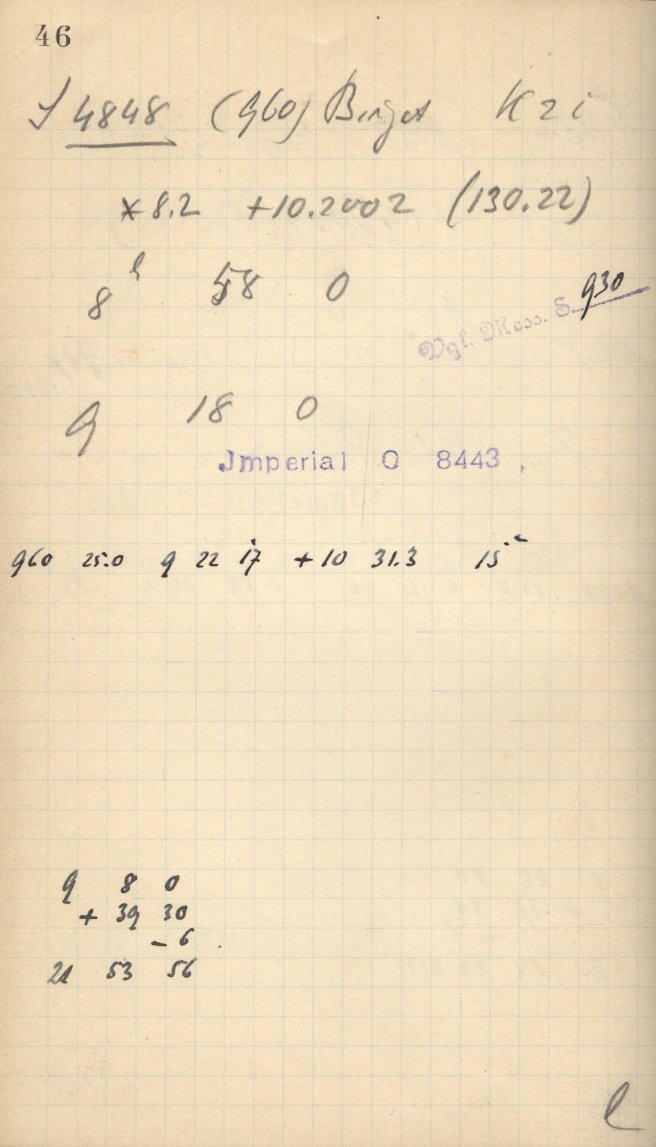 46
J 4848 (960) Birgit Kzi
* 8.2 +10.2002 (130.22)
8h 58 0
Vgl. Mess. S. 930
9 18 0
Jmperial O 8443,
960 25.0 9 22 17 +10 31.3 15
9 8 0
+ 39 30
- 6
21 53 56
l